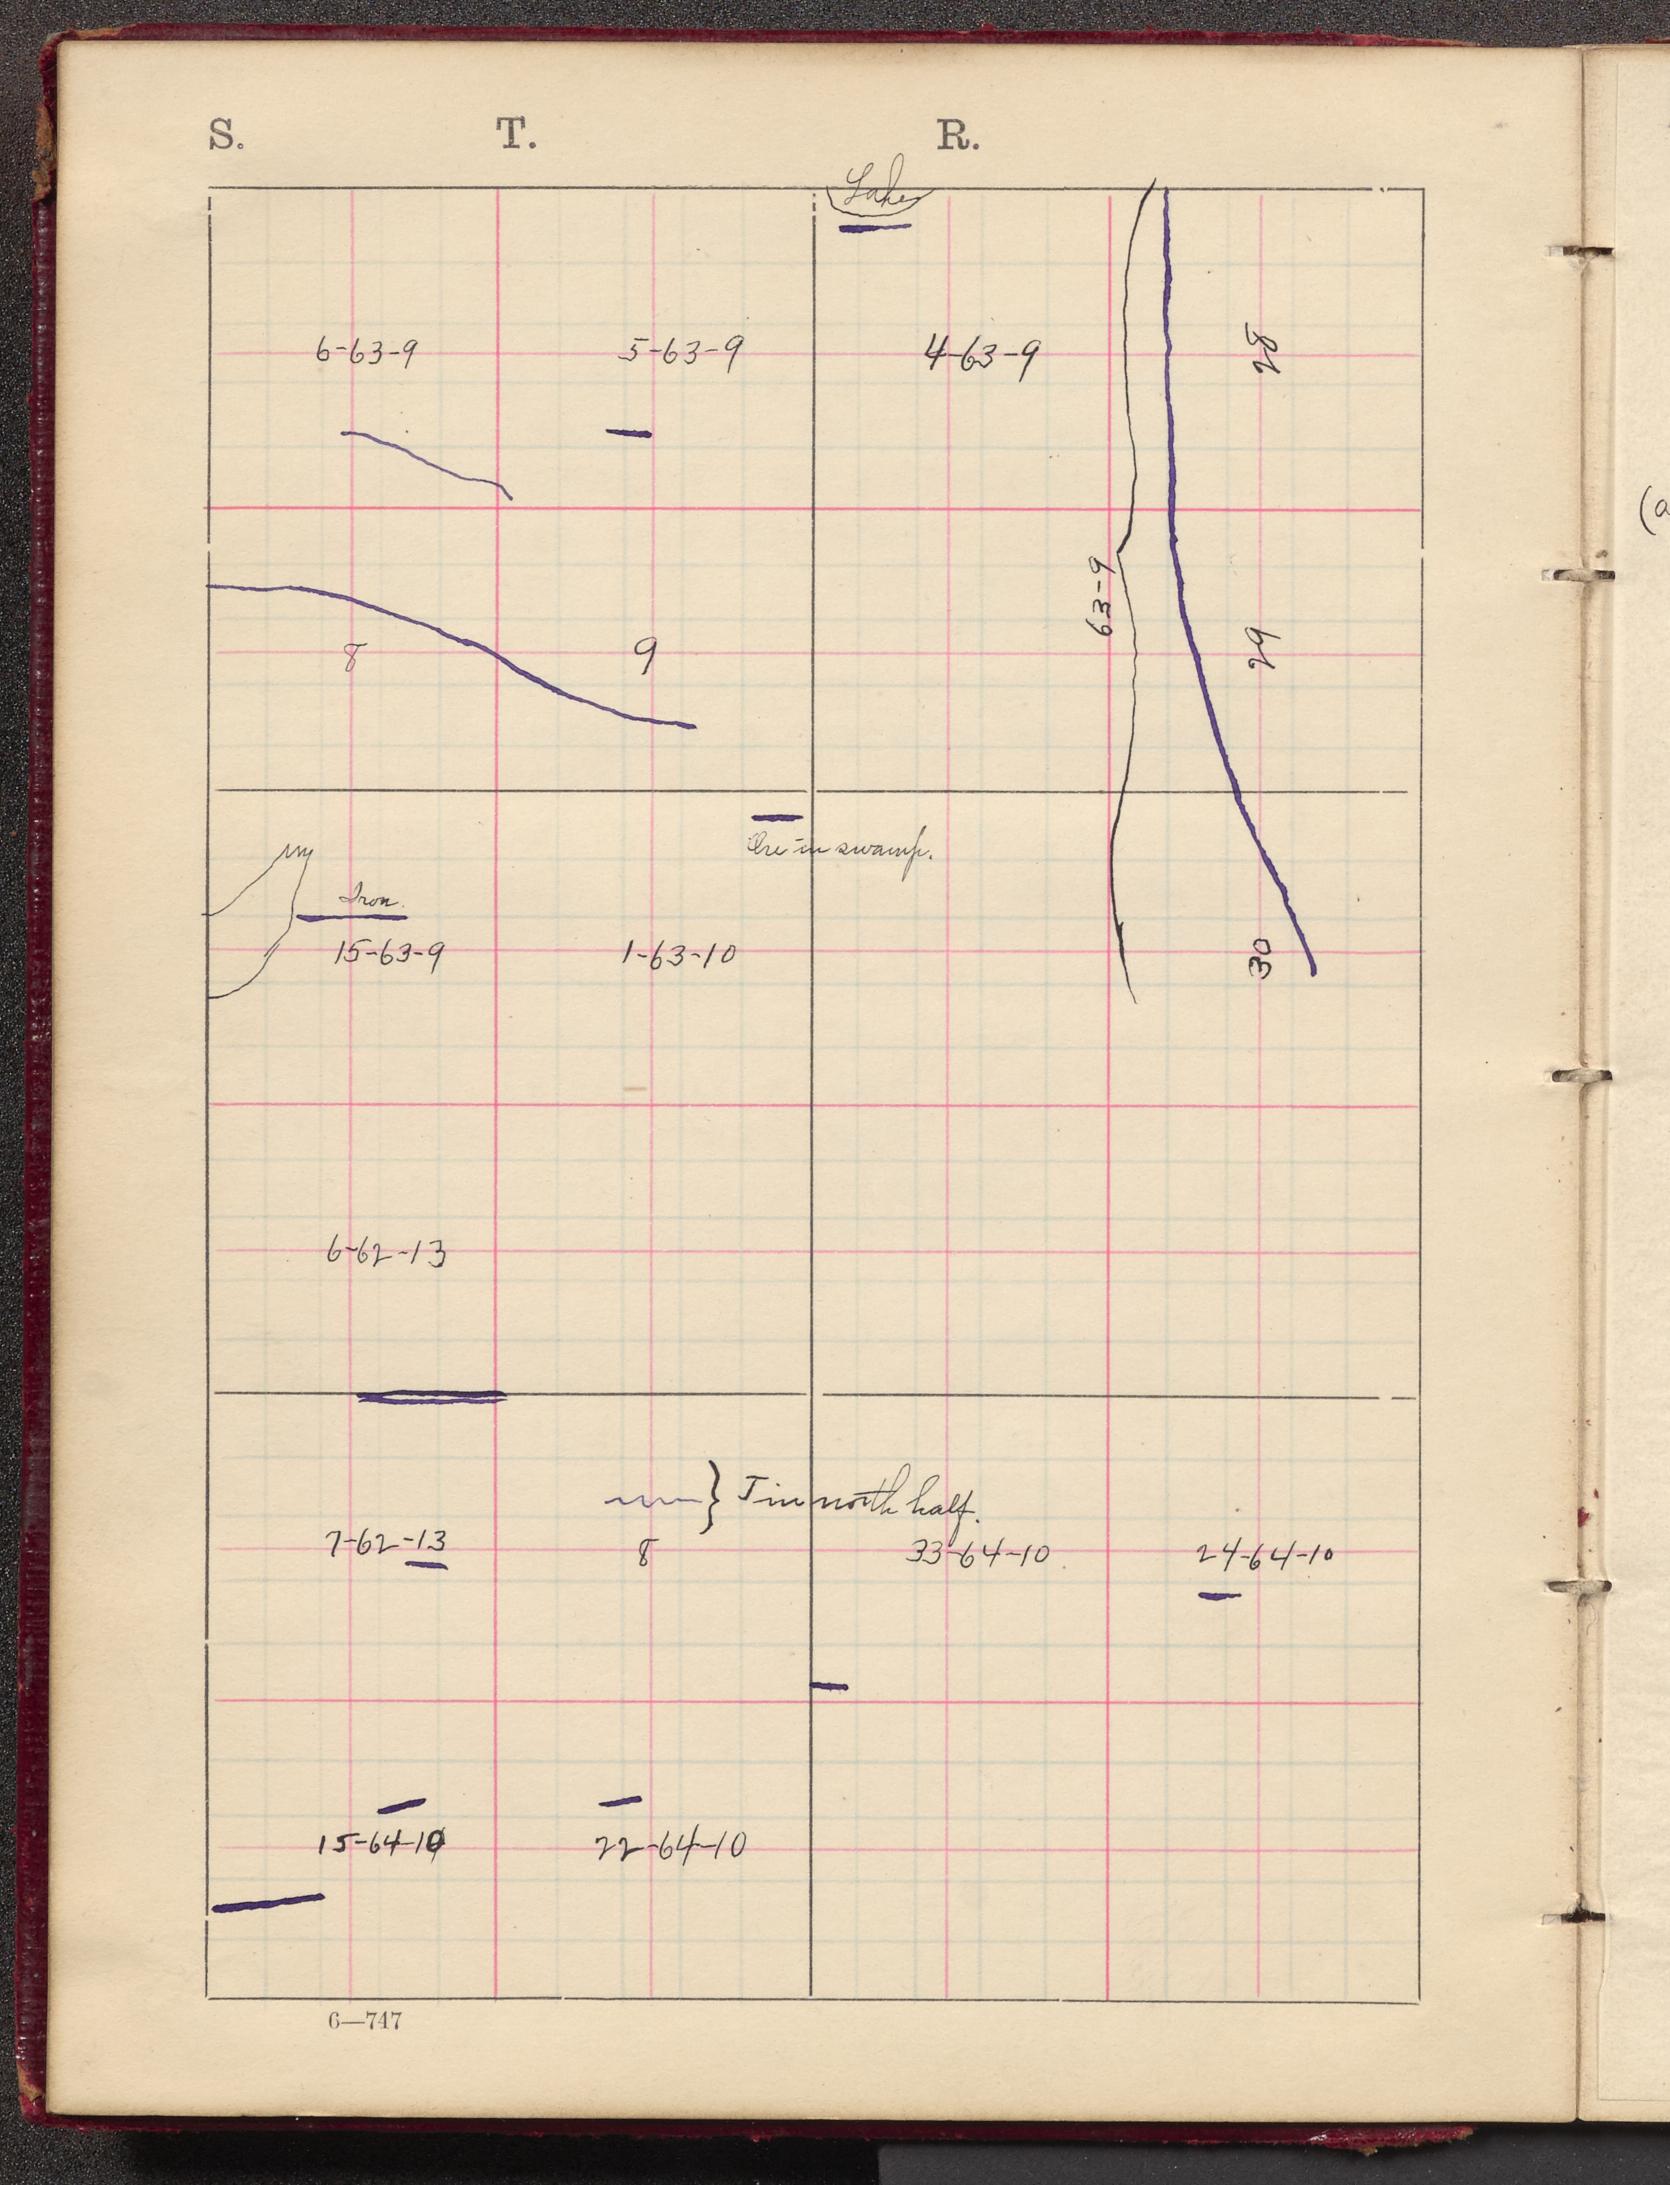 S. T. R.
Lake
6-63-9 5-63-9 4-63-9 28
63-9
8 9 29
Ore in swamp.
Iron.
15-63-9 1-63-10 30
6-62-13
} J in north half.
7-62-13 8 33-64-10 24-64-10
15-64-10 22-64-10
6—747
(a